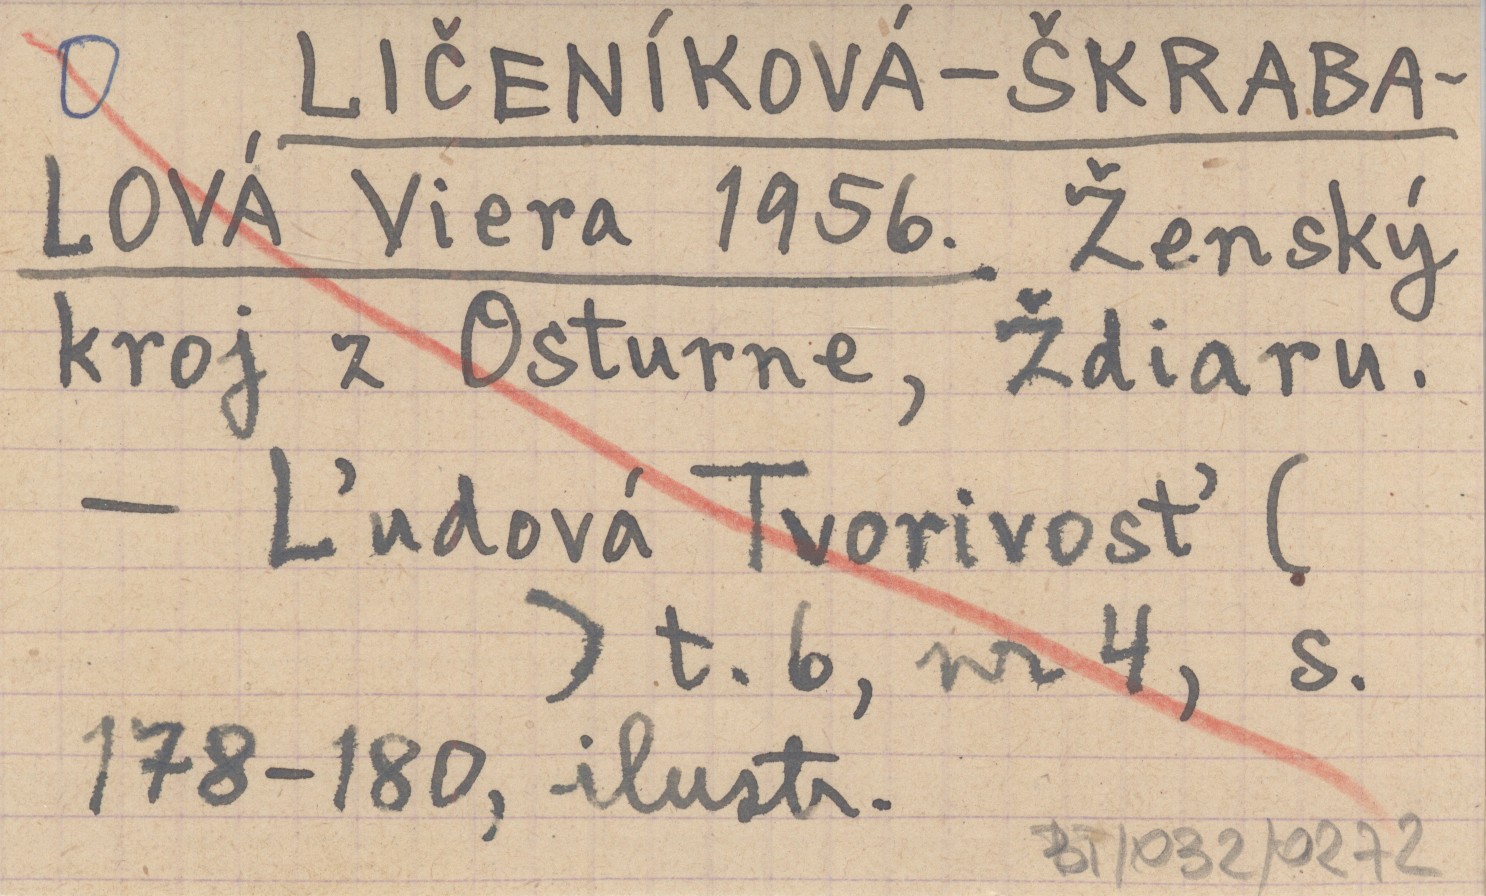 O LIČENÍKOVÁ-ŠKRABA-
LOVÁ Viera 1956. Ženský
kroj z Osturne, Ždiaru.
- Ľudová Tvorivosť (
) t. 6, nr 4, s.
178-180, ilustr.
BT/032/0272